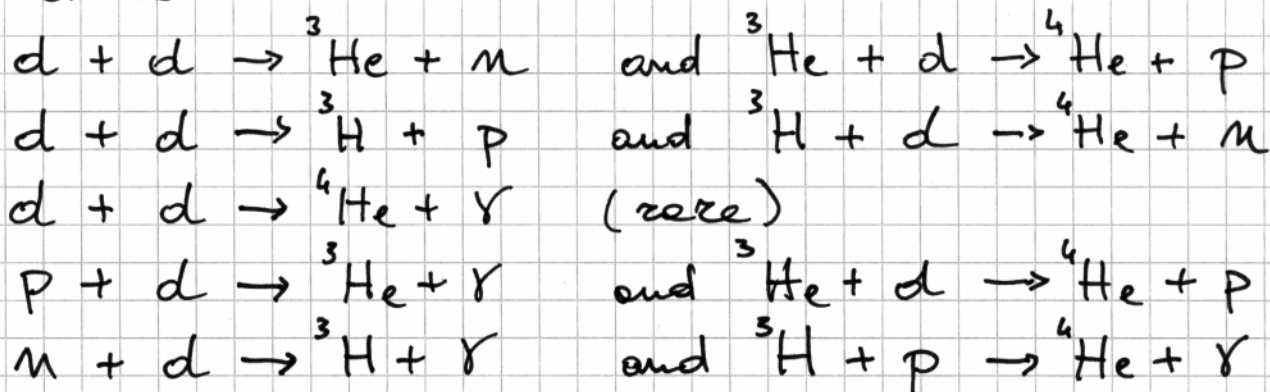 d + d → ³He + n and ³He + d → ⁴He + p
d + d → ³H + p and ³H + d → ⁴He + n
d + d → ⁴He + γ (rare)
p + d → ³He + γ and ³He + d → ⁴He + p
n + d → ³H + γ and ³H + p → ⁴He + γ